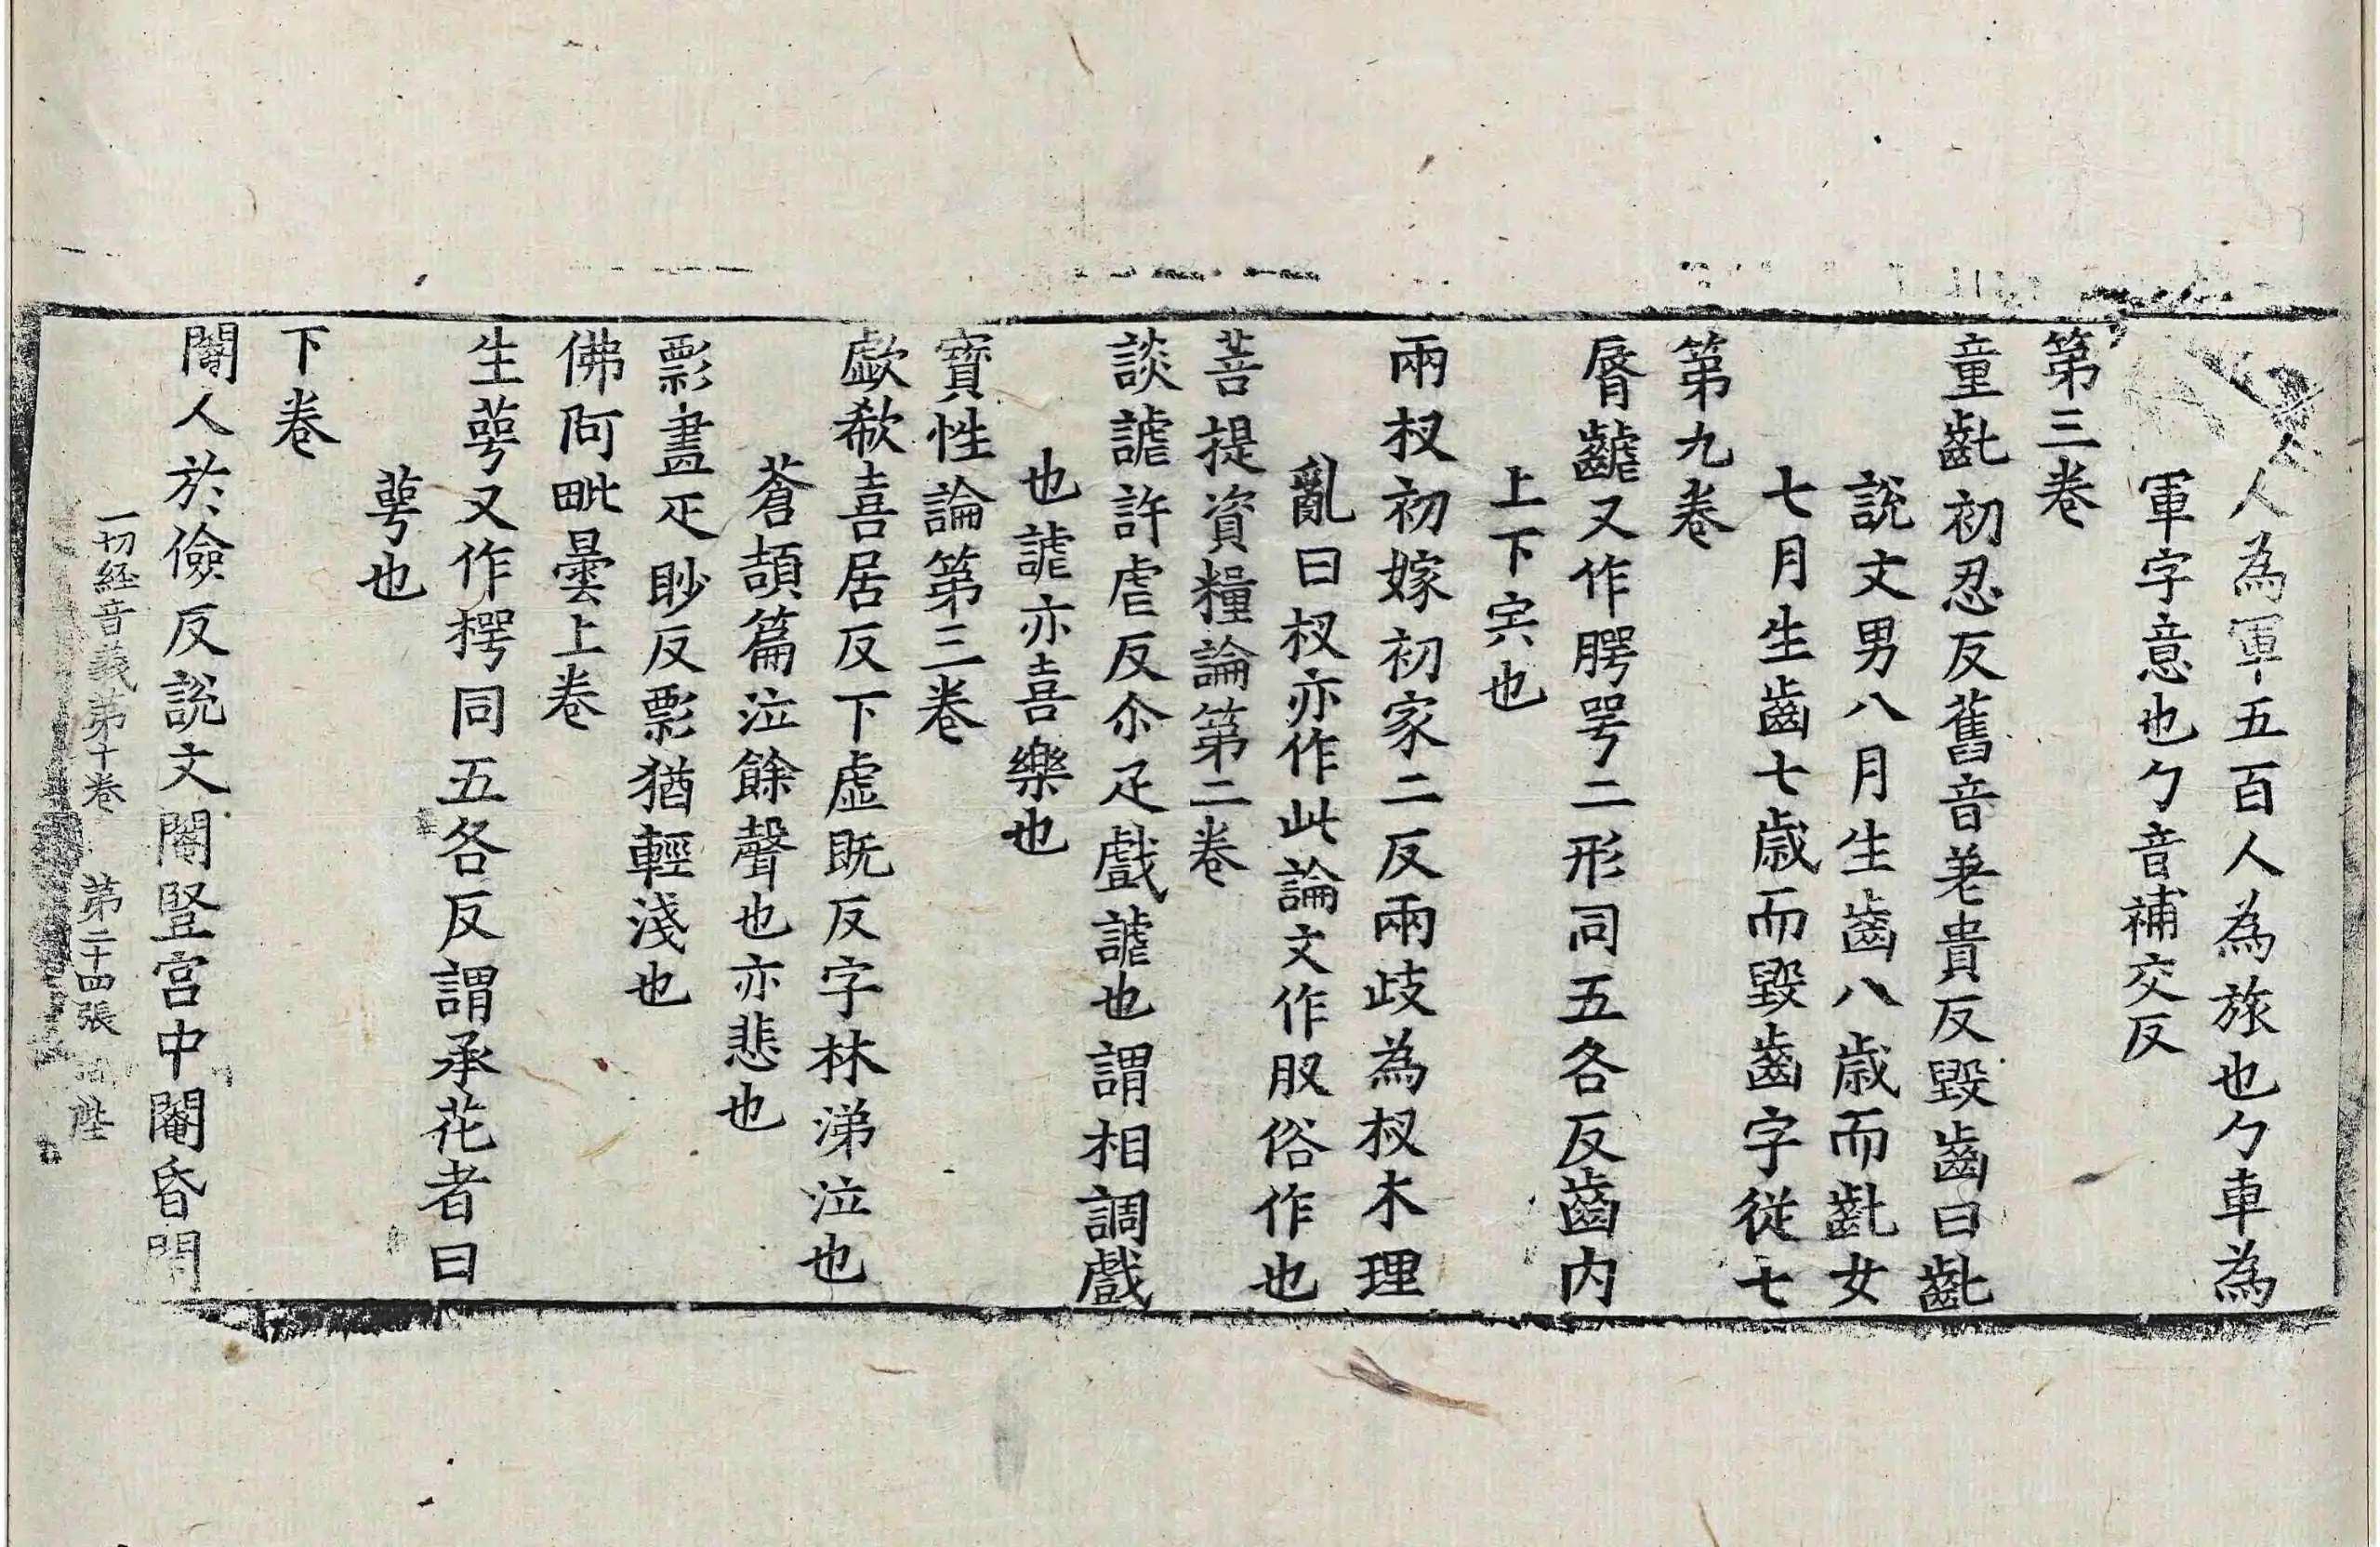 人人為軍五百人為旅也勹車為
軍字意也勹音補交反
第三卷
童齔初忍反舊音差貴反毀齒曰齔
說文男八月生齒八歳而齔女
七月生齒七歳而毀齒字從七
第九卷
脣齶又作腭咢二形同五各反齒内
上下宍也
兩杈初嫁初家二反兩歧為杈木理
亂曰杈亦作此論文作肞俗作也
菩提資糧論第二卷
談謔許虐反尒疋戲謔也謂相調戲
也謔亦喜樂也
寶性論第三卷
歔欷喜居反下虛既反字林涕泣也
蒼頡篇泣餘聲也亦悲也
影畫疋眇反影猶輕淺也
佛阿毗曇上卷
生萼又作樗同五各反謂承花者曰
萼也
下卷
閹人於儉反說文閹豎宮中閹昏門
一切経音義苐十卷 苐二十四張 陛